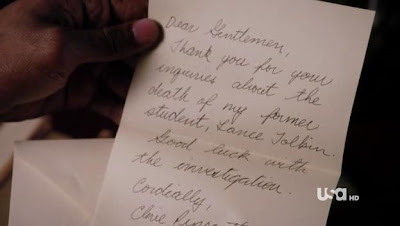 Dear Gentlemen,
Thank you for your
inquiries about the
death of my former
student, Lance Talbin.
Good luck with
the investigation.
Cordially,
usa HD